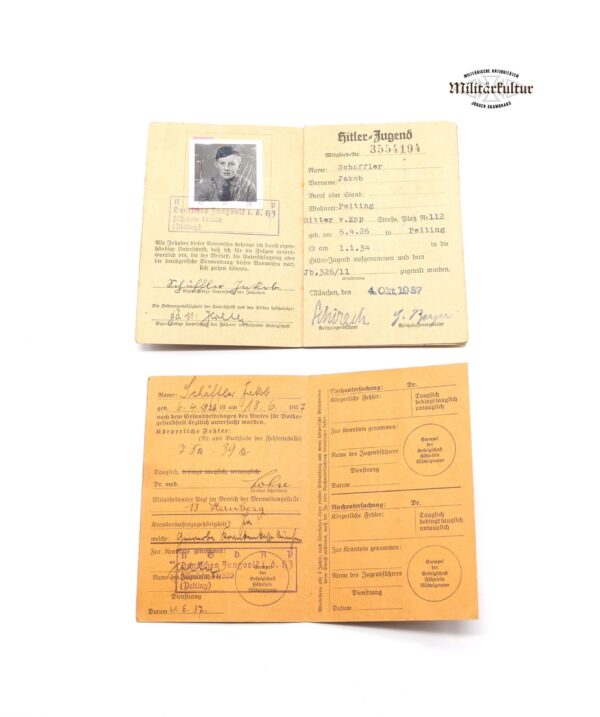 MILITÄRISCHE ANTIQUITÄTEN
Militärkultur
N S D A P
Deutsches Jungvolk i. d. HJ
(Peiting)
Als Inhaber dieses Ausweises bekenne ich durch eigen-
händige Unterschrift, daß ich für die Folgen verant-
wortlich bin, die der Verlust, die Unterschlagung oder
die betrügerische Verwendung dieses Ausweises nach
sich ziehen können.
Schäffler Jakob
Eigenhändige Unterschrift des Inhabers
Die Ordnungsmäßigkeit der Unterschrift und des Bildes bescheinigt:
Eigenhändige Unterschrift des Führers der Gefolgschaft
Hitler-Jugend
Mitglied-Nr. 3554194
Name: Schäffler
Vorname: Jakob
Beruf oder Stand:
Wohnort: Peiting
Ritter v.Epp Straße, Platz Nr. 112
geb. am 6.4.26 in Peiting
ist am 1.1.34 in die
Hitler-Jugend aufgenommen und dem
Jb.326/11 zugeteilt worden.
München, den 4. Okt. 1937
Schirach
Reichsjugendführer
Reichskassenverwalter
Name: Schäffler Jakob
geb. 6.4.1926 ist am 18.6. 1937
nach dem Gesundheitsbogen des Amtes für Volks-
gesundheit ärztlich untersucht worden.
Körperliche Fehler:
(Nr. und Buchstabe der Fehlertabelle)
7a 39a
Tauglich, bedingt tauglich, untauglich.
Dr. med.
Mitarbeitender Arzt im Bereich der Verwaltungsstelle:
13 Starnberg
Krankenkassenzugehörigkeit?
welche:
Zur Kenntnis genommen:
N S D A P
Deutsches Jungvolk i. d. HJ
Name des Jugendführers
(Peiting)
Dienstrang
Datum 6.37.
Stempel
der
Gefolgschaft
Fähnlein
Mädelgruppe
Nachuntersuchung: Dr.
Körperliche Fehler:
Tauglich
bedingt tauglich
untauglich
Zur Kenntnis genommen:
Name des Jugendführers
Dienstrang
Datum
Stempel
der
Gefolgschaft
Fähnlein
Mädelgruppe
Nachuntersuchung: Dr.
Körperliche Fehler:
Tauglich
bedingt tauglich
untauglich
Zur Kenntnis genommen:
Name des Jugendführers
Dienstrang
Datum
Stempel
der
Gefolgschaft
Fähnlein
Mädelgruppe